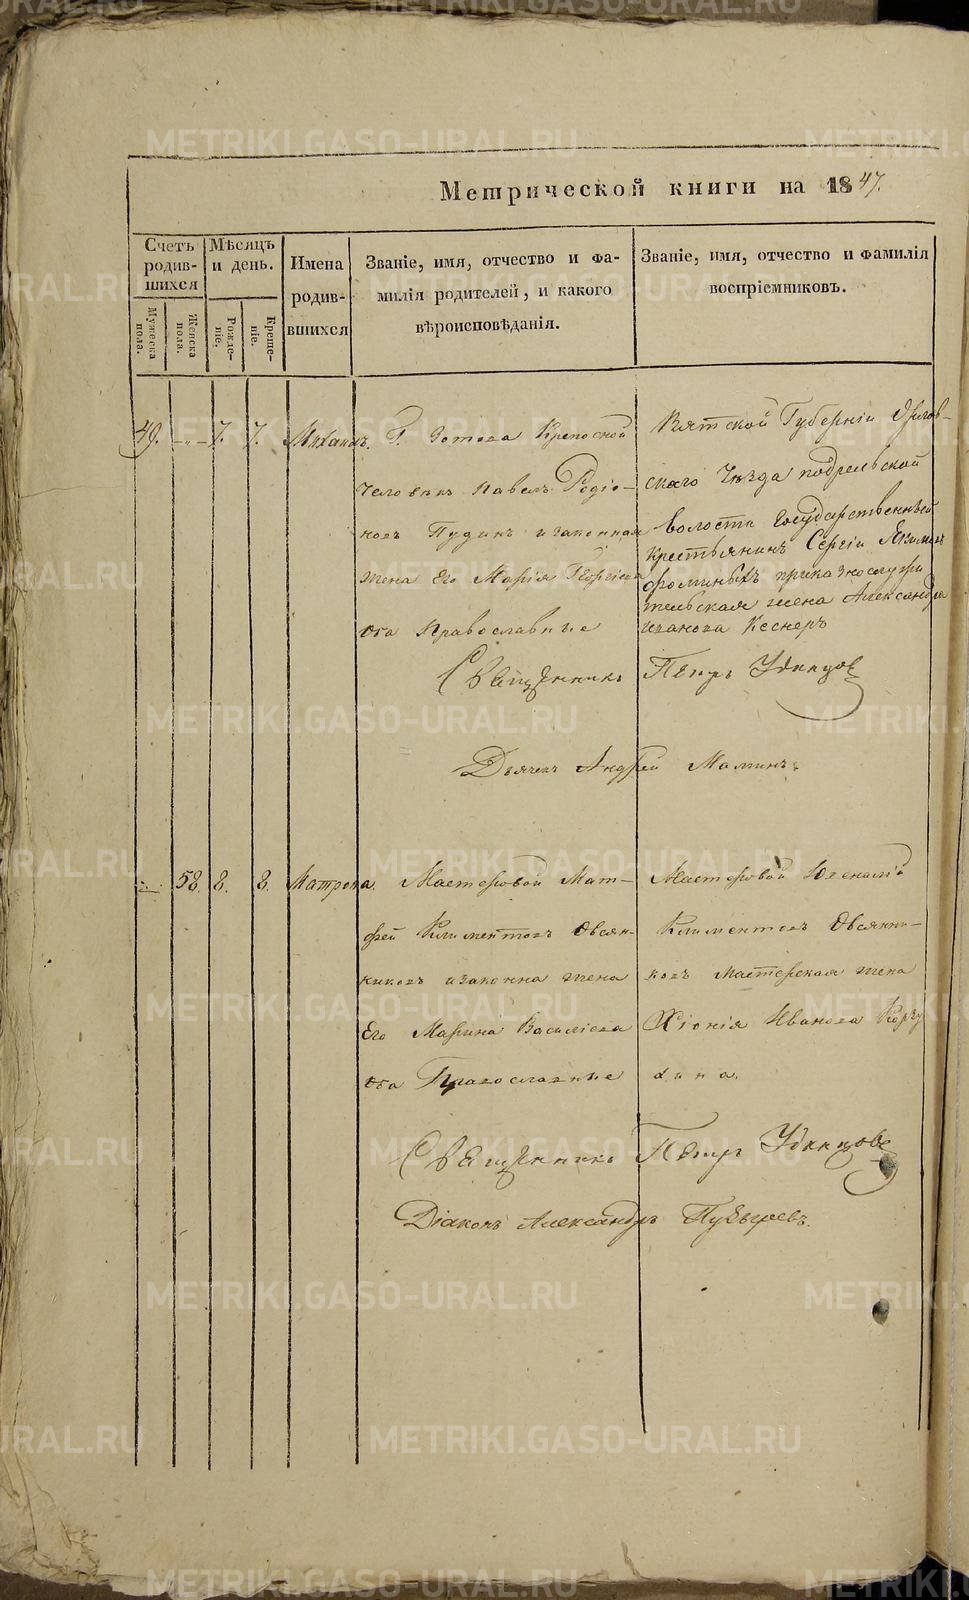 METRIKI.GASO-URAL.RU
Метрической книги на 1847.
Счетъ родив-шихся
Мѣсяцъ и день.
Имена родив-вшихся
Званіе, имя, отчество и фа-
милія родителей, и какого
вѣроисповѣданія.
Званіе, имя, отчество и фамилія
воспріемниковъ.
Мужеска пола.
Женска пола.
Рожде-ніе.
Креще-ніе.
49. —„— 7. 7. Михаилъ.
Г. Зотова Крепосной
человекъ Павелъ Родіо-
новъ Пудинъ и законная
жена Его Марія Георгіева
оба Православные
Вятской Губерніи Орлов-
скаго Уезда подрельской
волости Государственный
крестьянинъ Сергіи Якимовъ
Фоминыхъ приказнослужи
тельская жена Александра
Иванова Кеснеръ
Священникъ Петръ Удинцов
Дьячекъ Андрей Маминъ.
58. 8. 8. Матрона.
Мастеровой Мат-
фей Климентовъ Овсян-
никовъ и законна жена
Его Марина Василіева
оба Православные
Мастеровой Ювеналій
Климентовъ Овсянни-
ковъ мастерская жена
Хіонія Иванова Корзу
хина.
Священникъ Петръ Удинцовъ
Діаконъ Александръ Пузыревъ.